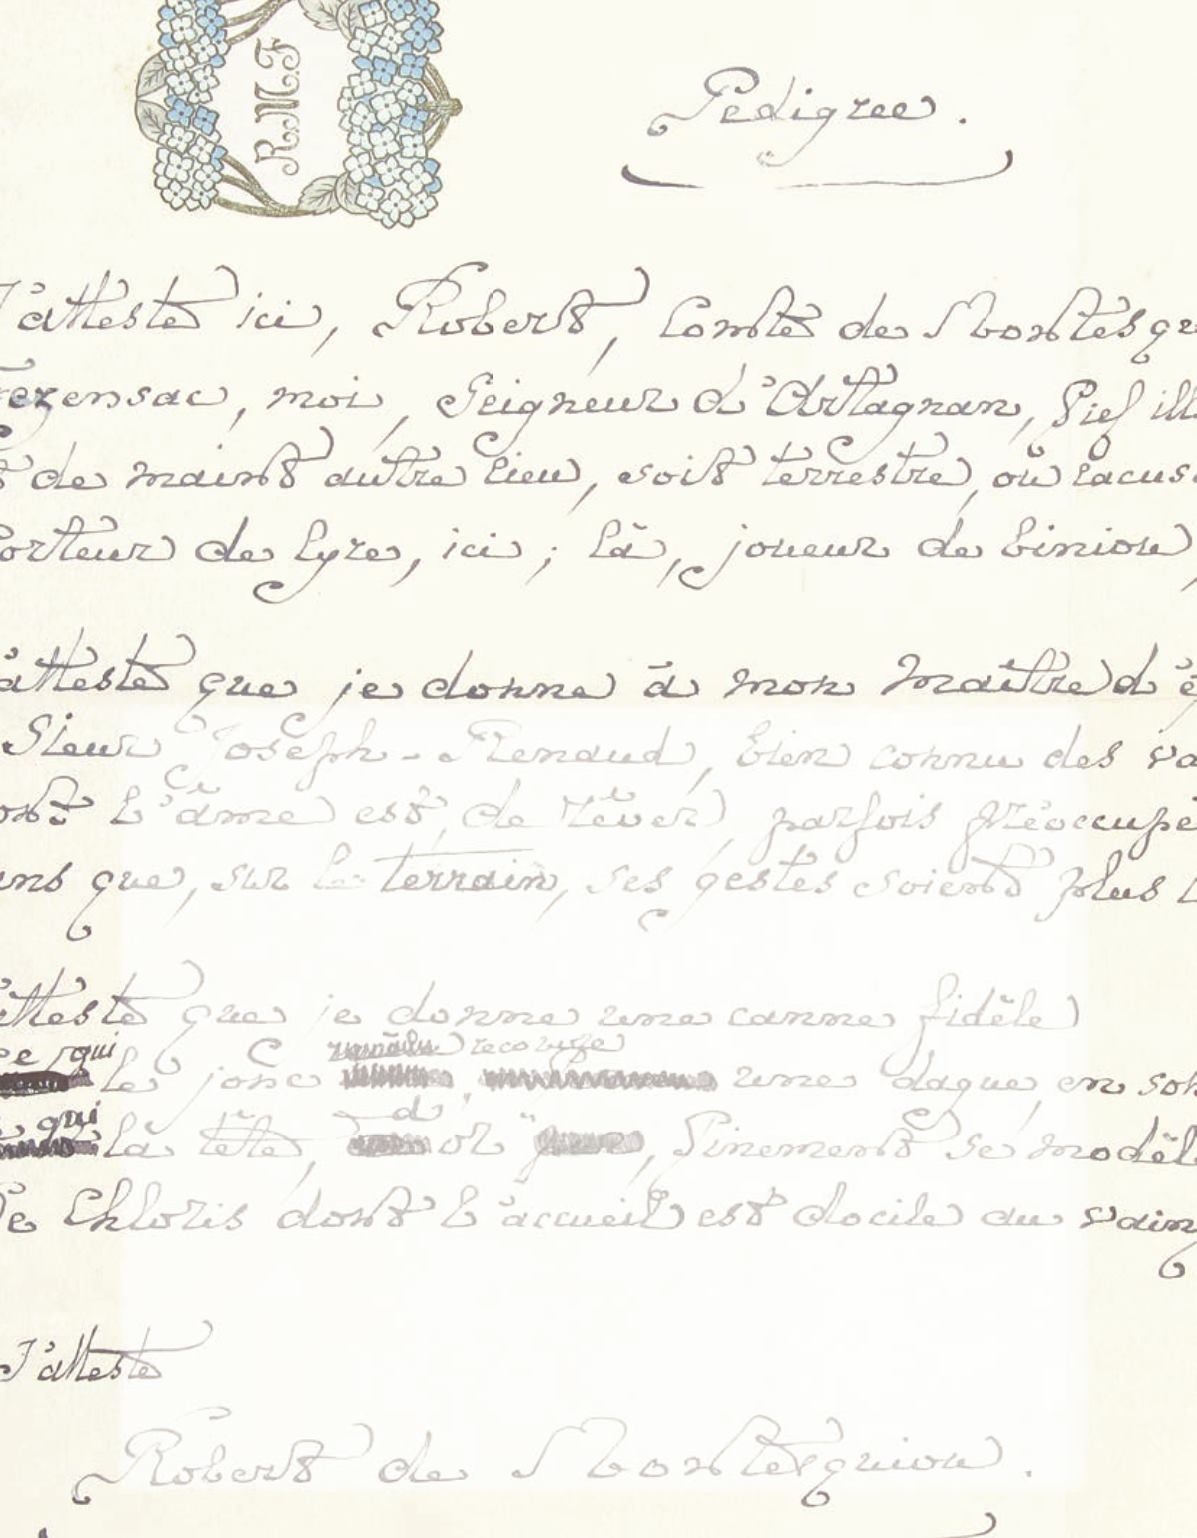 RMF
Pedigree.
J'atteste ici, Robert, Comte de Montesqu
Fezensac, moi, Seigneur d'Artagnan, Fief ill
t de maint autre lieu, soit terrestre, ou lacus
Porteur de lyre, ici ; là, joueur de biniou,
atteste que je donne à mon maître d'é
Sieur Joseph-Renaud, bien connu des va
ont l'âme est, de rêver, parfois préoccupé
ans que, sur le terrain, ses gestes soient plus
atteste que je donne une canne fidèle
qui recouvre
le jonc une dague, en son
qui d'
la tête, or finement se modèl
De Chloris dont l'accueil est docile au vain
J'atteste
Robert de Montesquiou.